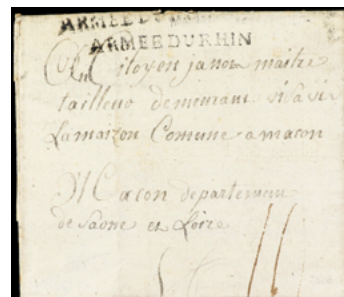 ARMÉE DU
ARMÉE DU RHIN
Au Citoyen janon maitre
tailleur demeurant visavis
Lamaizon Comune a macon
Macon departemen
de Saone et Loire